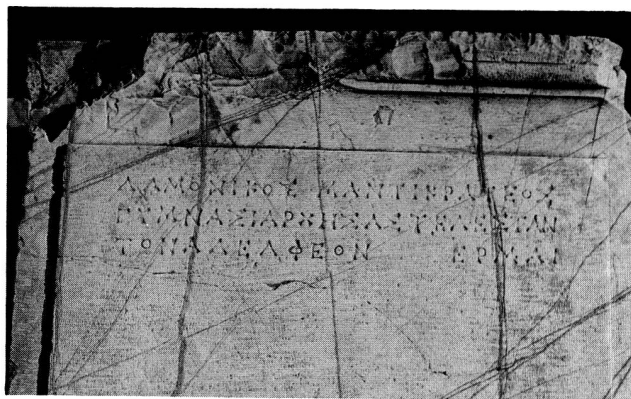 ΔΑΜΟΝΙΚΟΣ ΜΑΝΤΙΚΡΑΤΕΟΣ
ΓΥΜΝΑΣΙΑΡΧΗΣΑΣΤΕΛΕΣΤΑΝ
ΤΟΝΑΔΕΛΦΕΟΝ ΕΡΜΑΙ